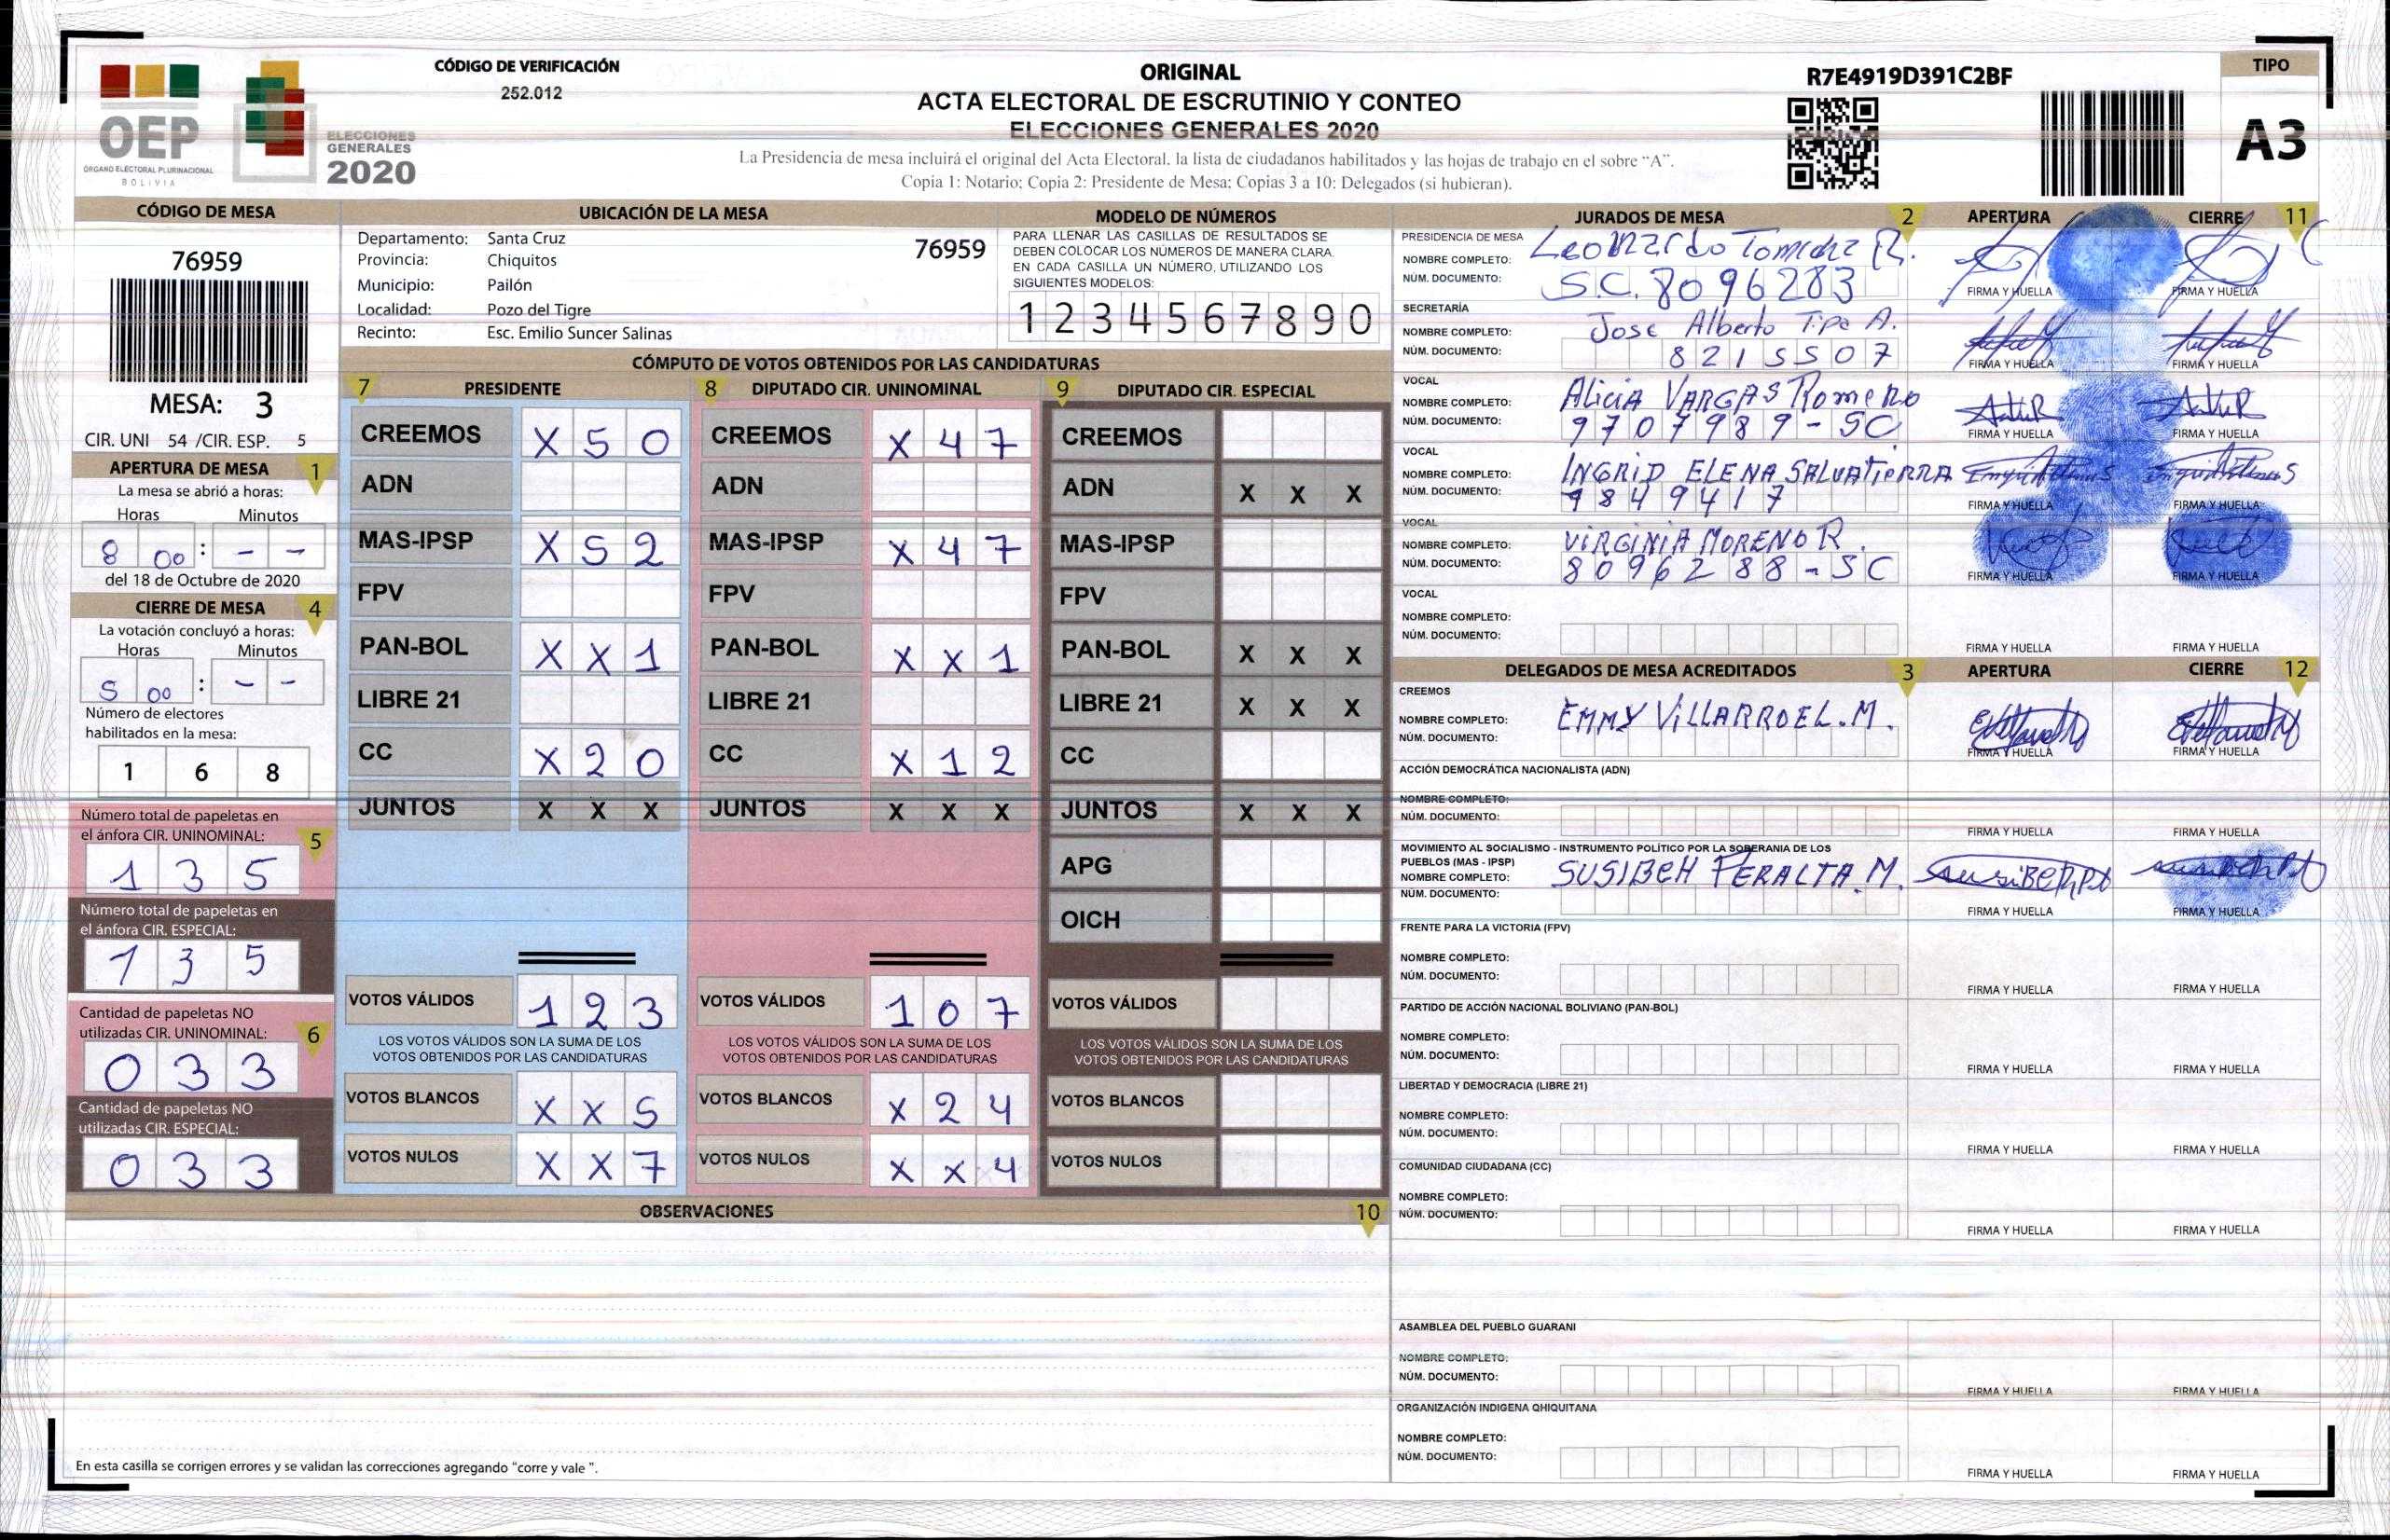 OEP
ÓRGANO ELECTORAL PLURINACIONAL
BOLIVIA
ELECCIONES
GENERALES
2020
CÓDIGO DE VERIFICACIÓN
252.012
ORIGINAL
ACTA ELECTORAL DE ESCRUTINIO Y CONTEO
ELECCIONES GENERALES 2020
La Presidencia de mesa incluirá el original del Acta Electoral, la lista de ciudadanos habilitados y las hojas de trabajo en el sobre “A”.
Copia 1: Notario; Copia 2: Presidente de Mesa; Copias 3 a 10: Delegados (si hubieran).
R7E4919D391C2BF
TIPO
A3
CÓDIGO DE MESA
76959
MESA: 3
CIR. UNI 54 /CIR. ESP. 5
APERTURA DE MESA 1
La mesa se abrió a horas:
Horas Minutos
8 00 : - -
del 18 de Octubre de 2020
CIERRE DE MESA 4
La votación concluyó a horas:
Horas Minutos
5 00 : - -
Número de electores
habilitados en la mesa:
1 6 8
Número total de papeletas en
el ánfora CIR. UNINOMINAL: 5
1 3 5
Número total de papeletas en
el ánfora CIR. ESPECIAL:
1 3 5
Cantidad de papeletas NO
utilizadas CIR. UNINOMINAL: 6
0 3 3
Cantidad de papeletas NO
utilizadas CIR. ESPECIAL:
0 3 3
UBICACIÓN DE LA MESA
Departamento: Santa Cruz 76959
Provincia: Chiquitos
Municipio: Pailón
Localidad: Pozo del Tigre
Recinto: Esc. Emilio Suncer Salinas
MODELO DE NÚMEROS
PARA LLENAR LAS CASILLAS DE RESULTADOS SE
DEBEN COLOCAR LOS NÚMEROS DE MANERA CLARA.
EN CADA CASILLA UN NÚMERO, UTILIZANDO LOS
SIGUIENTES MODELOS:
1 2 3 4 5 6 7 8 9 0
CÓMPUTO DE VOTOS OBTENIDOS POR LAS CANDIDATURAS
7 PRESIDENTE
CREEMOS X 5 0
ADN
MAS-IPSP X 5 2
FPV
PAN-BOL X X 1
LIBRE 21
CC X 2 0
JUNTOS X X X
VOTOS VÁLIDOS 1 2 3
LOS VOTOS VÁLIDOS SON LA SUMA DE LOS
VOTOS OBTENIDOS POR LAS CANDIDATURAS
VOTOS BLANCOS X X 5
VOTOS NULOS X X 7
8 DIPUTADO CIR. UNINOMINAL
CREEMOS X 4 7
ADN
MAS-IPSP X 4 7
FPV
PAN-BOL X X 1
LIBRE 21
CC X 1 2
JUNTOS X X X
VOTOS VÁLIDOS 1 0 7
LOS VOTOS VÁLIDOS SON LA SUMA DE LOS
VOTOS OBTENIDOS POR LAS CANDIDATURAS
VOTOS BLANCOS X 2 4
VOTOS NULOS X X 4
9 DIPUTADO CIR. ESPECIAL
CREEMOS
ADN X X X
MAS-IPSP
FPV
PAN-BOL X X X
LIBRE 21 X X X
CC
JUNTOS X X X
APG
OICH
VOTOS VÁLIDOS
LOS VOTOS VÁLIDOS SON LA SUMA DE LOS
VOTOS OBTENIDOS POR LAS CANDIDATURAS
VOTOS BLANCOS
VOTOS NULOS
OBSERVACIONES 10
En esta casilla se corrigen errores y se validan las correcciones agregando "corre y vale ".
JURADOS DE MESA 2 APERTURA CIERRE 11
PRESIDENCIA DE MESA
NOMBRE COMPLETO: Leonardo R.
NÚM. DOCUMENTO: S.C. 8096283
FIRMA Y HUELLA FIRMA Y HUELLA
SECRETARÍA
NOMBRE COMPLETO: Jose Alberto Tipa A.
NÚM. DOCUMENTO: 8215507
FIRMA Y HUELLA FIRMA Y HUELLA
VOCAL
NOMBRE COMPLETO: Alicia VARGAS Romero
NÚM. DOCUMENTO: 9707989-SC
FIRMA Y HUELLA FIRMA Y HUELLA
VOCAL
NOMBRE COMPLETO: INGRID ELENA SALVATIERRA
NÚM. DOCUMENTO: 9849417
FIRMA Y HUELLA FIRMA Y HUELLA
VOCAL
NOMBRE COMPLETO: VIRGINIA MORENO R.
NÚM. DOCUMENTO: 8096288-SC
FIRMA Y HUELLA FIRMA Y HUELLA
VOCAL
NOMBRE COMPLETO:
NÚM. DOCUMENTO:
FIRMA Y HUELLA FIRMA Y HUELLA
DELEGADOS DE MESA ACREDITADOS 3 APERTURA CIERRE 12
CREEMOS
NOMBRE COMPLETO: EMMY VILLARROEL.M.
NÚM. DOCUMENTO:
FIRMA Y HUELLA FIRMA Y HUELLA
ACCIÓN DEMOCRÁTICA NACIONALISTA (ADN)
NOMBRE COMPLETO:
NÚM. DOCUMENTO:
FIRMA Y HUELLA FIRMA Y HUELLA
MOVIMIENTO AL SOCIALISMO - INSTRUMENTO POLÍTICO POR LA SOBERANIA DE LOS
PUEBLOS (MAS - IPSP)
NOMBRE COMPLETO: SUSIBEH PERALTA.M.
NÚM. DOCUMENTO:
FIRMA Y HUELLA FIRMA Y HUELLA
FRENTE PARA LA VICTORIA (FPV)
NOMBRE COMPLETO:
NÚM. DOCUMENTO:
FIRMA Y HUELLA FIRMA Y HUELLA
PARTIDO DE ACCIÓN NACIONAL BOLIVIANO (PAN-BOL)
NOMBRE COMPLETO:
NÚM. DOCUMENTO:
FIRMA Y HUELLA FIRMA Y HUELLA
LIBERTAD Y DEMOCRACIA (LIBRE 21)
NOMBRE COMPLETO:
NÚM. DOCUMENTO:
FIRMA Y HUELLA FIRMA Y HUELLA
COMUNIDAD CIUDADANA (CC)
NOMBRE COMPLETO:
NÚM. DOCUMENTO:
FIRMA Y HUELLA FIRMA Y HUELLA
ASAMBLEA DEL PUEBLO GUARANI
NOMBRE COMPLETO:
NÚM. DOCUMENTO:
FIRMA Y HUELLA FIRMA Y HUELLA
ORGANIZACIÓN INDIGENA QHIQUITANA
NOMBRE COMPLETO:
NÚM. DOCUMENTO:
FIRMA Y HUELLA FIRMA Y HUELLA